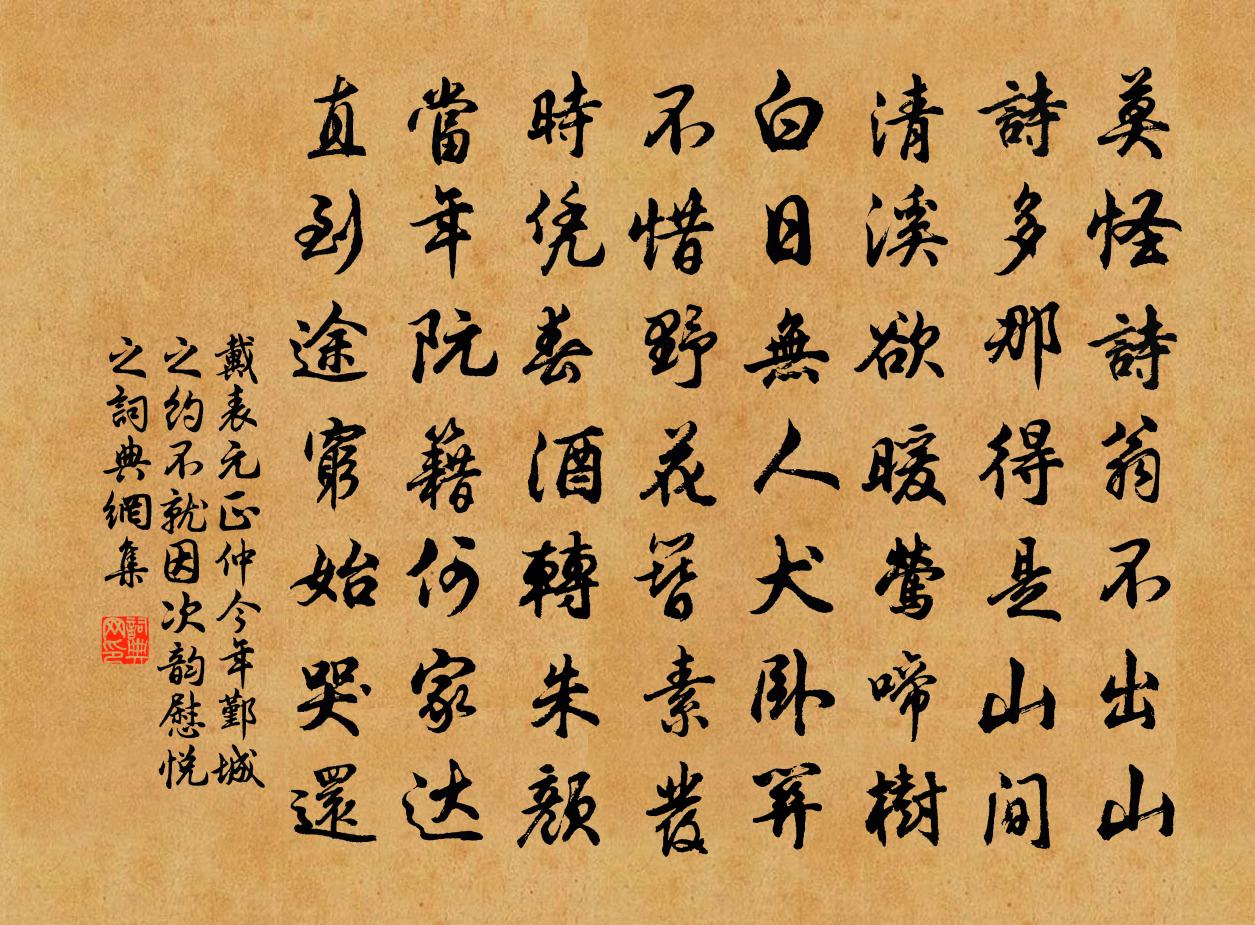 莫怪詩翁不出山
詩多那得是山間
清溪欲暖鶯啼樹
白日無人犬卧關
不惜野花簪素髮
時凭春酒轉朱顏
當年阮籍何家达
直到途窮始哭還
戴表元正仲今年鄞城
之約不就因次韵慰悦
之詞典網集
詞典网印